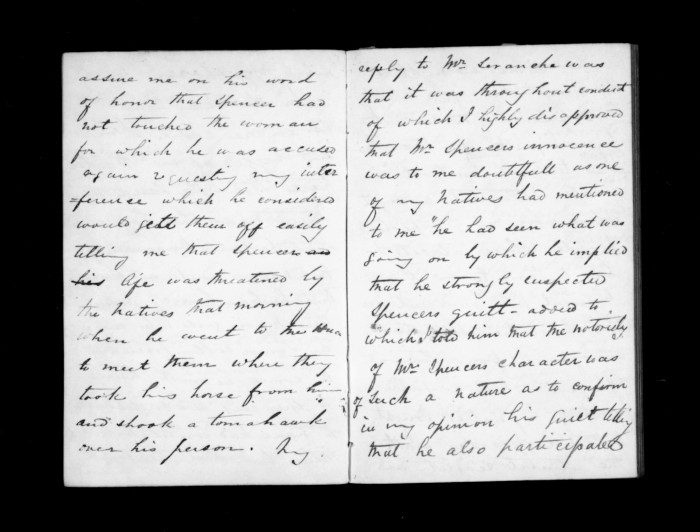 assure me on his word
of honor that Spencer had
not touched the woman
for which he was accused
again requesting my inter
=ference which he considered
would gett them off easily
telling me that Spencers and
his life was threatined by
the Natives that morning
when he went to the
to meet them where they
took his horse from him
and shook a tomahawk
over his person. My
reply to Mr. Seranche was
that it was throughout conduct
of which I highly disapproved
that Mr Spencers innocence
was to me doubtfull as one
of my Natives had mentioned
to me "he had seen what was
going on by which he implied
that he strongly suspected
Spencers guilt - added to
which I told him that the notoriety
of Mr Spencers character was
of such a nature as to confirm
in my opinion his guilt telling
that he also participated